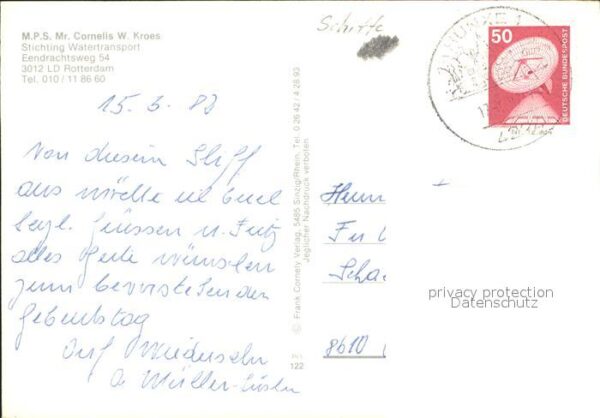 M.P.S. Mr. Cornelis W. Kroes
Stichting Watertransport
Eendrachtsweg 54
3012 LD Rotterdam
Tel. 010 / 11 86 60
Schiffe
50
DEUTSCHE BUNDESPOST
15. 6. 83
Von diesem Schiff
aus möchte ich Euch
grüssen u. Fritz
alles Gute wünschen
zum bevorstehenden
Geburtstag
Auf Wiedersehn
© Frank Cornely Verlag, 5485 Sinzig/Rhein, Tel. 0 26 42 / 4 28 93
Jeglicher Nachdruck verboten
122
8610
privacy protection
Datenschutz